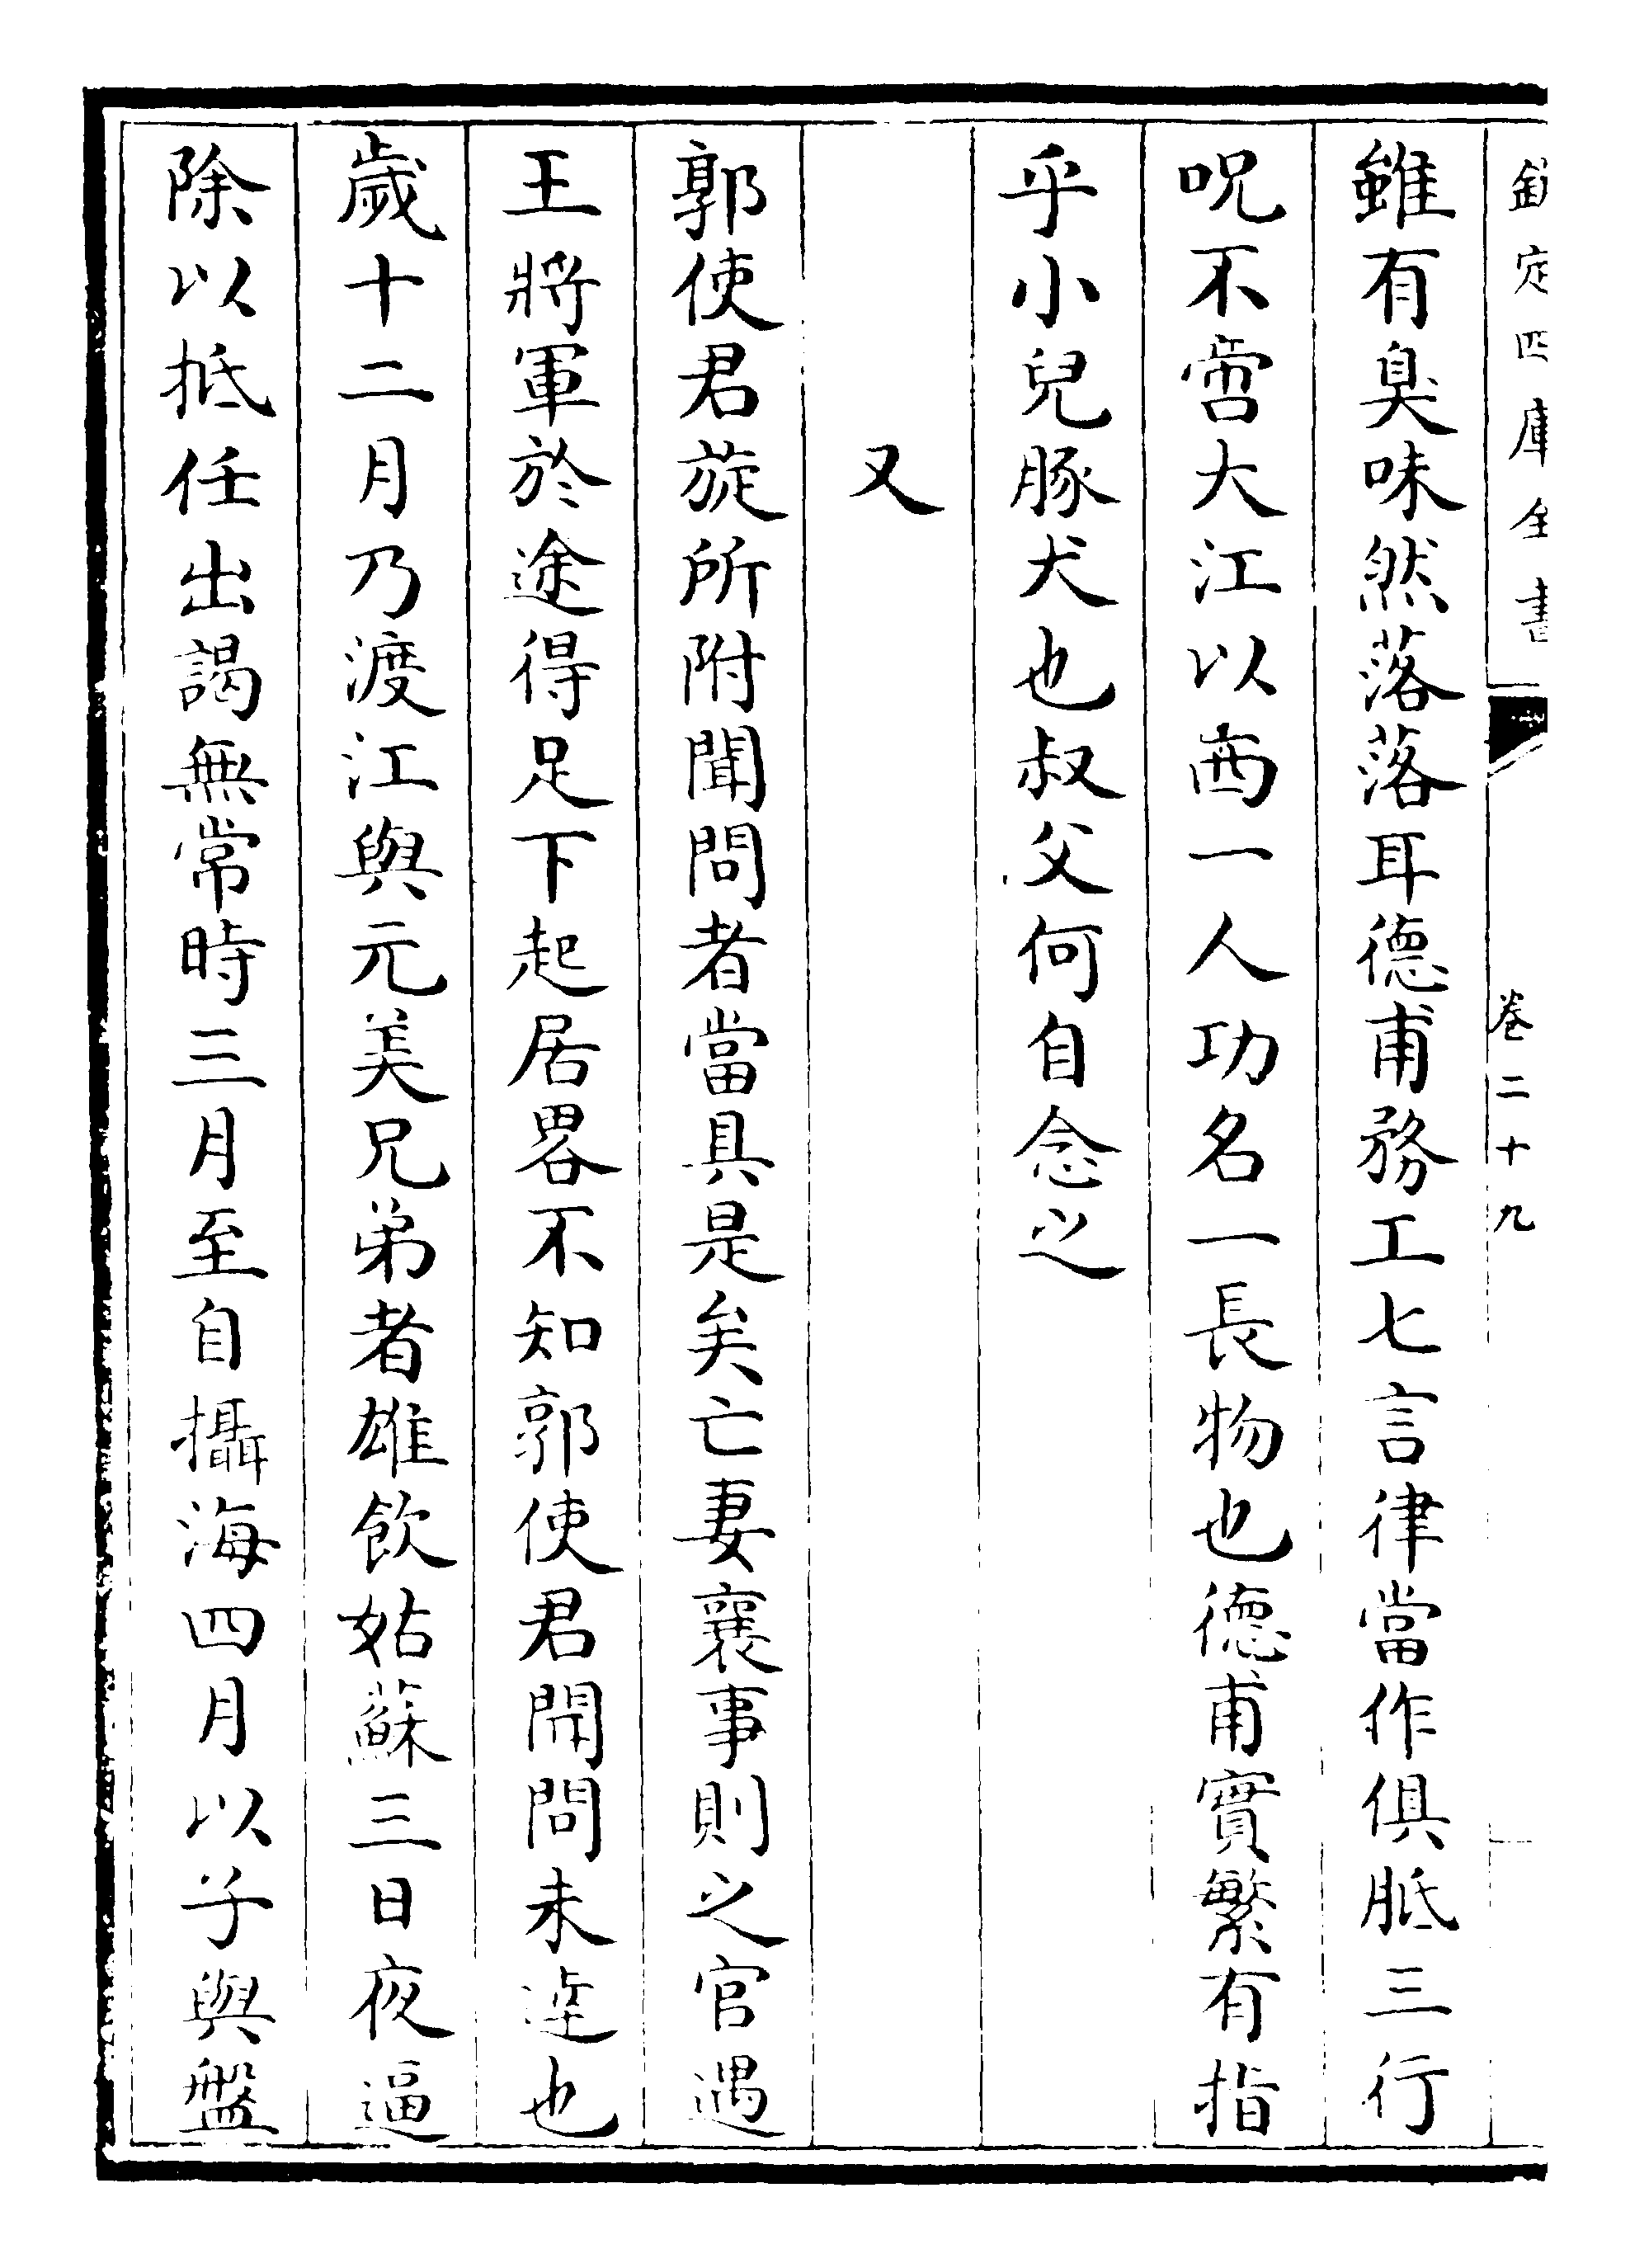 欽定四庫全書
卷二十九
雖有臭味然落落耳德甫務工七言律當作俱胝三行
呪不啻大江以西一人功名一長物也德甫實繁有指
乎小兒豚犬也叔父何自念之
又
郭使君旋所附聞問者當具是矣亡妻襄事則之官遇
王將軍於途得足下起居畧不知郭使君聞問未達也
歲十二月乃渡江與元美兄弟者雄飲姑蘇三日夜逼
除以抵任出謁無常時三月至自攝海四月以子與盤